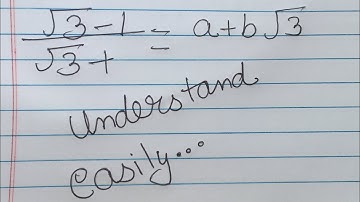 √3 - 1
√3 +
= a + b√3
understand
easily...